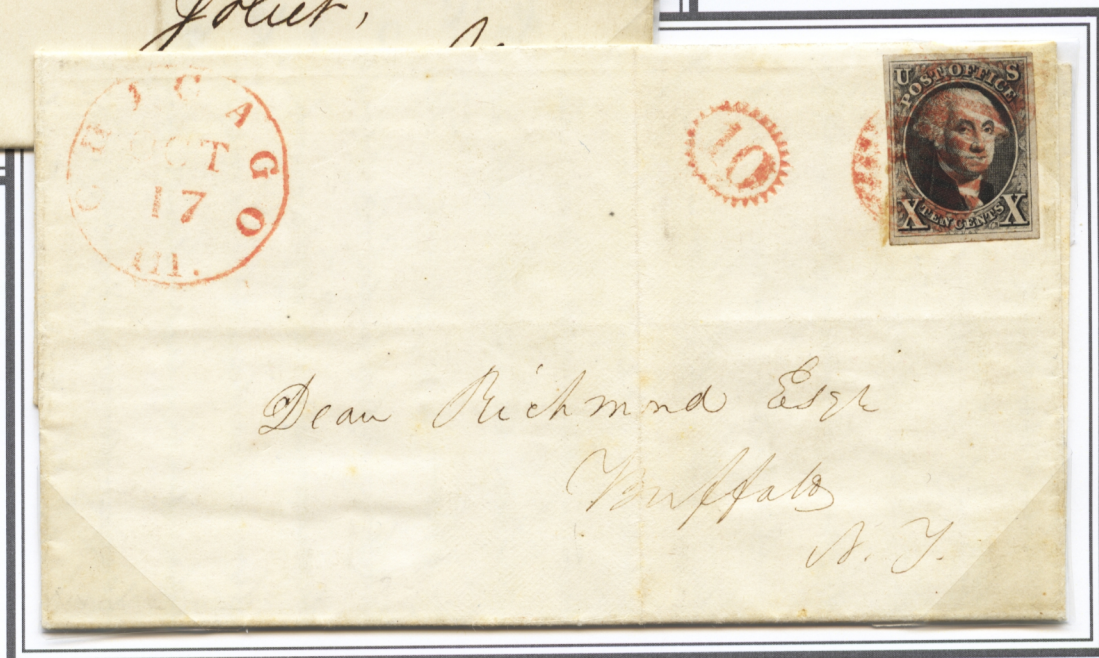 Joliet,
CHICAGO
OCT
17
Ill.
10
U S
POST OFFICE
X TEN CENTS X
Dean Richmond Esqr
Buffalo
N. Y.